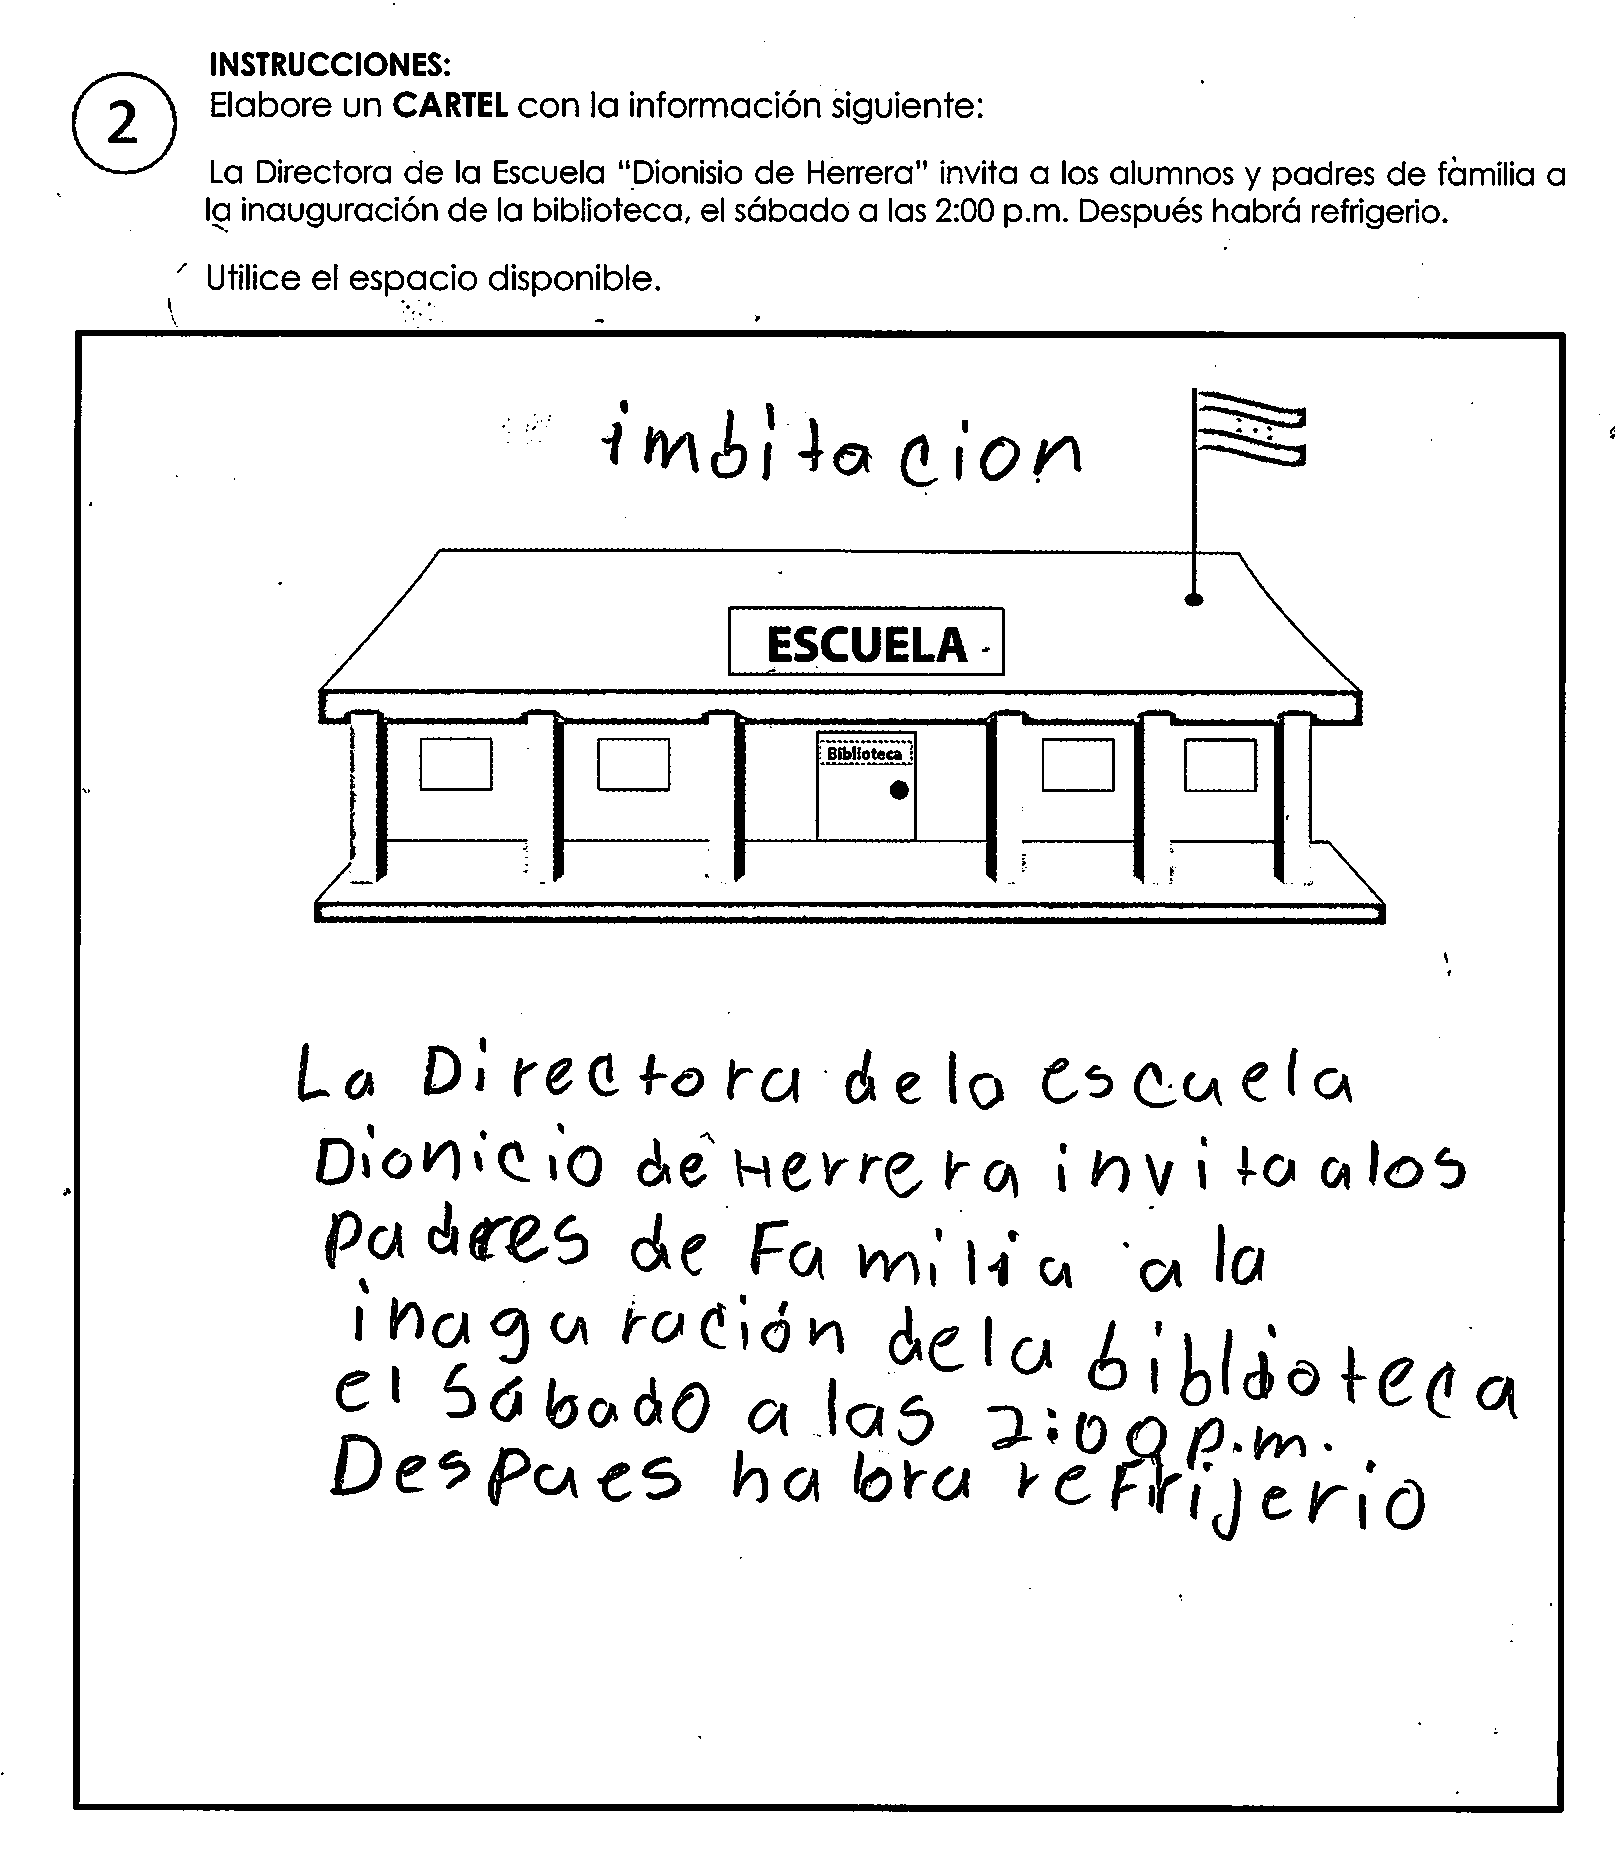 INSTRUCCIONES:
2
Elabore un CARTEL con la información siguiente:
La Directora de la Escuela "Dionisio de Herrera" invita a los alumnos y padres de familia a
la inauguración de la biblioteca, el sábado a las 2:00 p.m. Después habrá refrigerio.
Utilice el espacio disponible.
imbitacion
ESCUELA
Biblioteca
La Directora dela escuela
Dionicio de Herrera invita alos
padres de Familia a la
inaguración dela biblioteca
el Sábado a las 2:00 p.m.
Despues habra refrijerio